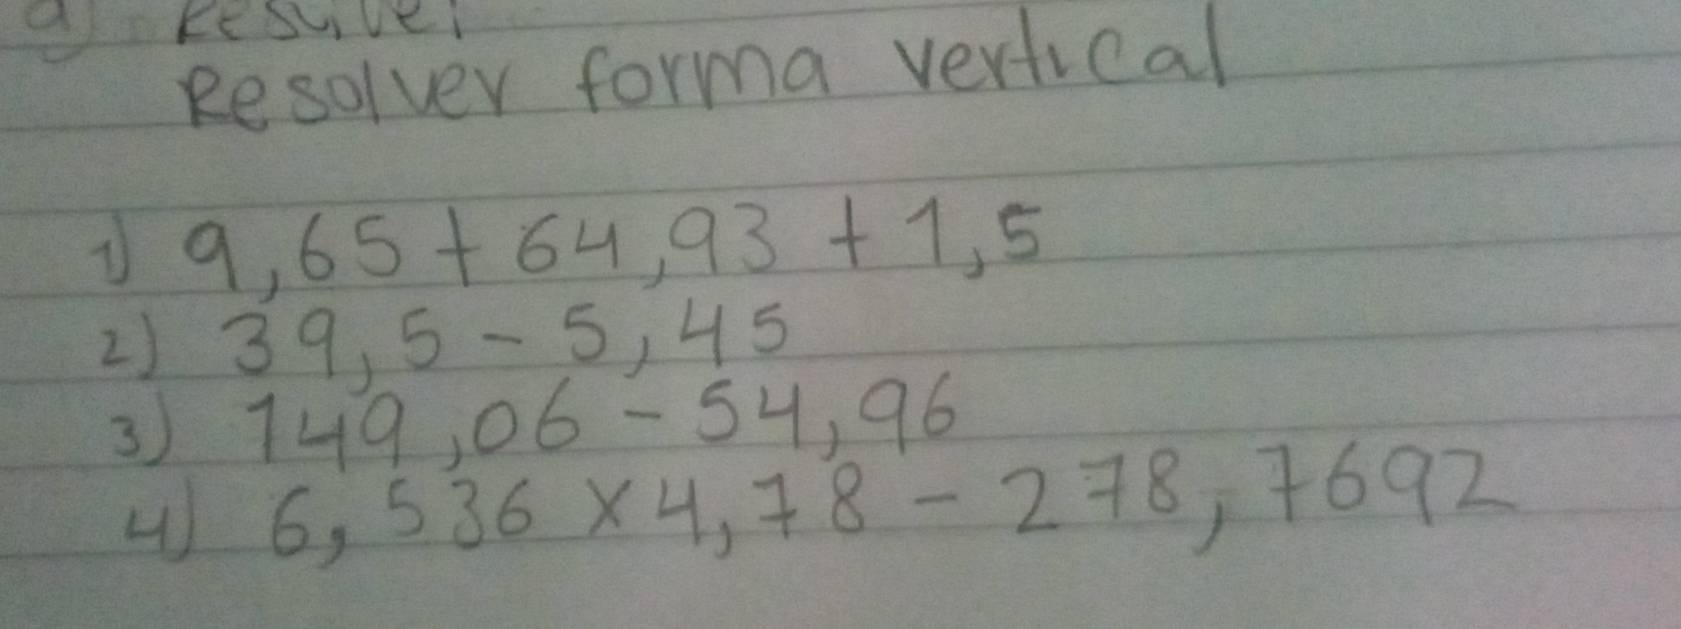 a) Resolver
Resolver forma vertical
1) 9,65 + 64,93 + 1,5
2) 39,5 - 5,45
3) 149,06 - 54,96
4) 6,536 x 4,78 - 278,7692